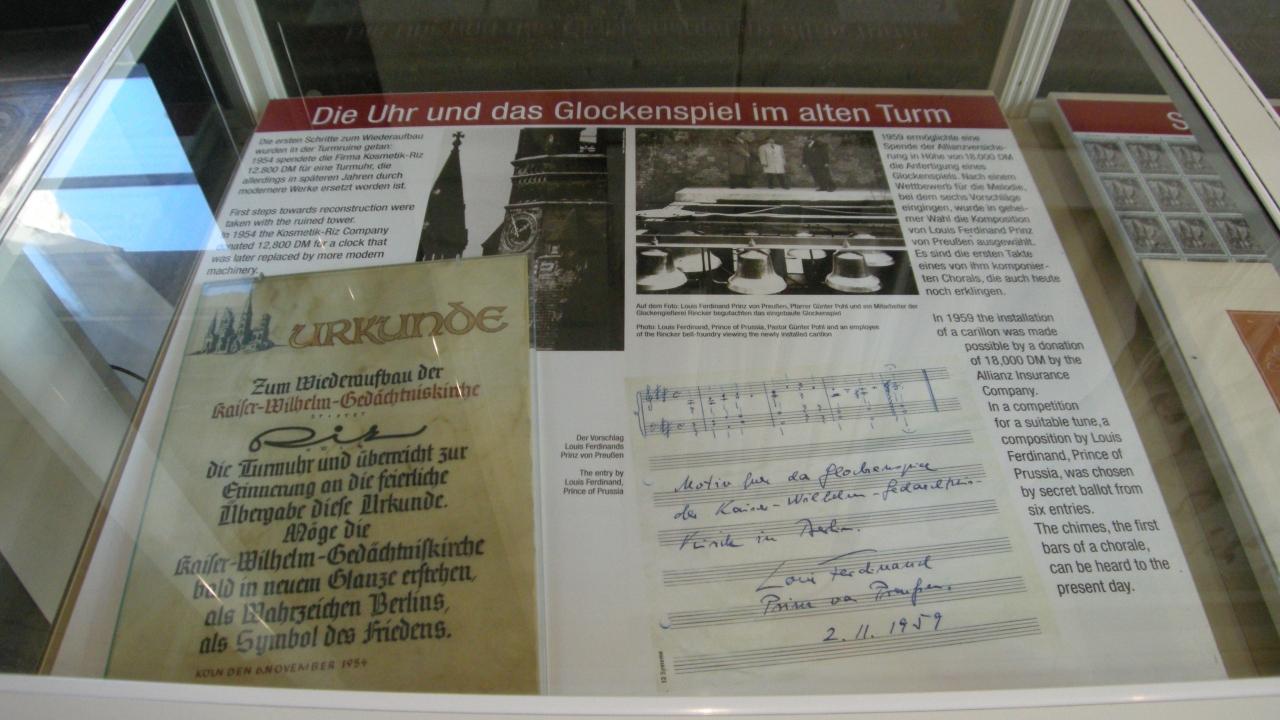 Die Uhr und das Glockenspiel im alten Turm
Die ersten Schritte zum Wiederaufbau
wurden in der Turmruine getan:
1954 spendete die Firma Kosmetik-Riz
12.800 DM für eine Turmuhr, die
allerdings in späteren Jahren durch
modernere Werke ersetzt worden ist.
First steps towards reconstruction were
taken with the ruined tower.
1954 the Kosmetik-Riz Company
nated 12,800 DM for a clock that
was later replaced by more modern
machinery.
URKUNDE
Zum Wiederaufbau der
Kaiser-Wilhelm-Gedächtniskirche
Riz
die Turmuhr und überreicht zur
Erinnerung an die feierliche
Übergabe diese Urkunde.
Möge die
Kaiser-Wilhelm-Gedächtniskirche
bald in neuem Glanze erstehen,
als Wahrzeichen Berlins,
als Symbol des Friedens.
KÖLN DEN 6.NOVEMBER 1954
Auf dem Foto: Louis Ferdinand Prinz von Preußen, Pfarrer Günter Pohl und ein Mitarbeiter der
Glockengießerei Rincker begutachten das eingebaute Glockenspiel
Photo: Louis Ferdinand, Prince of Prussia, Pastor Günter Pohl and an employee
of the Rincker bell-foundry viewing the newly installed carillon
Der Vorschlag
Louis Ferdinands
Prinz von Preußen
The entry by
Louis Ferdinand,
Prince of Prussia
Motiv für das Glockenspiel
der Kaiser-Wilhelm-Gedächtnis-
Kirche in Berlin.
Louis Ferdinand
Prinz von Preußen.
2.11.1959
12 Systeme
1959 ermöglichte eine
Spende der Allianzversiche-
rung in Höhe von 18.000 DM
die Anfertigung eines
Glockenspiels. Nach einem
Wettbewerb für die Melodie,
bei dem sechs Vorschläge
eingingen, wurde in gehei-
mer Wahl die Komposition
von Louis Ferdinand Prinz
von Preußen ausgewählt.
Es sind die ersten Takte
eines von ihm komponier-
ten Chorals, die auch heute
noch erklingen.
In 1959 the installation
of a carillon was made
possible by a donation
of 18,000 DM by the
Allianz Insurance
Company.
In a competition
for a suitable tune, a
composition by Louis
Ferdinand, Prince of
Prussia, was chosen
by secret ballot from
six entries.
The chimes, the first
bars of a chorale,
can be heard to the
present day.
S